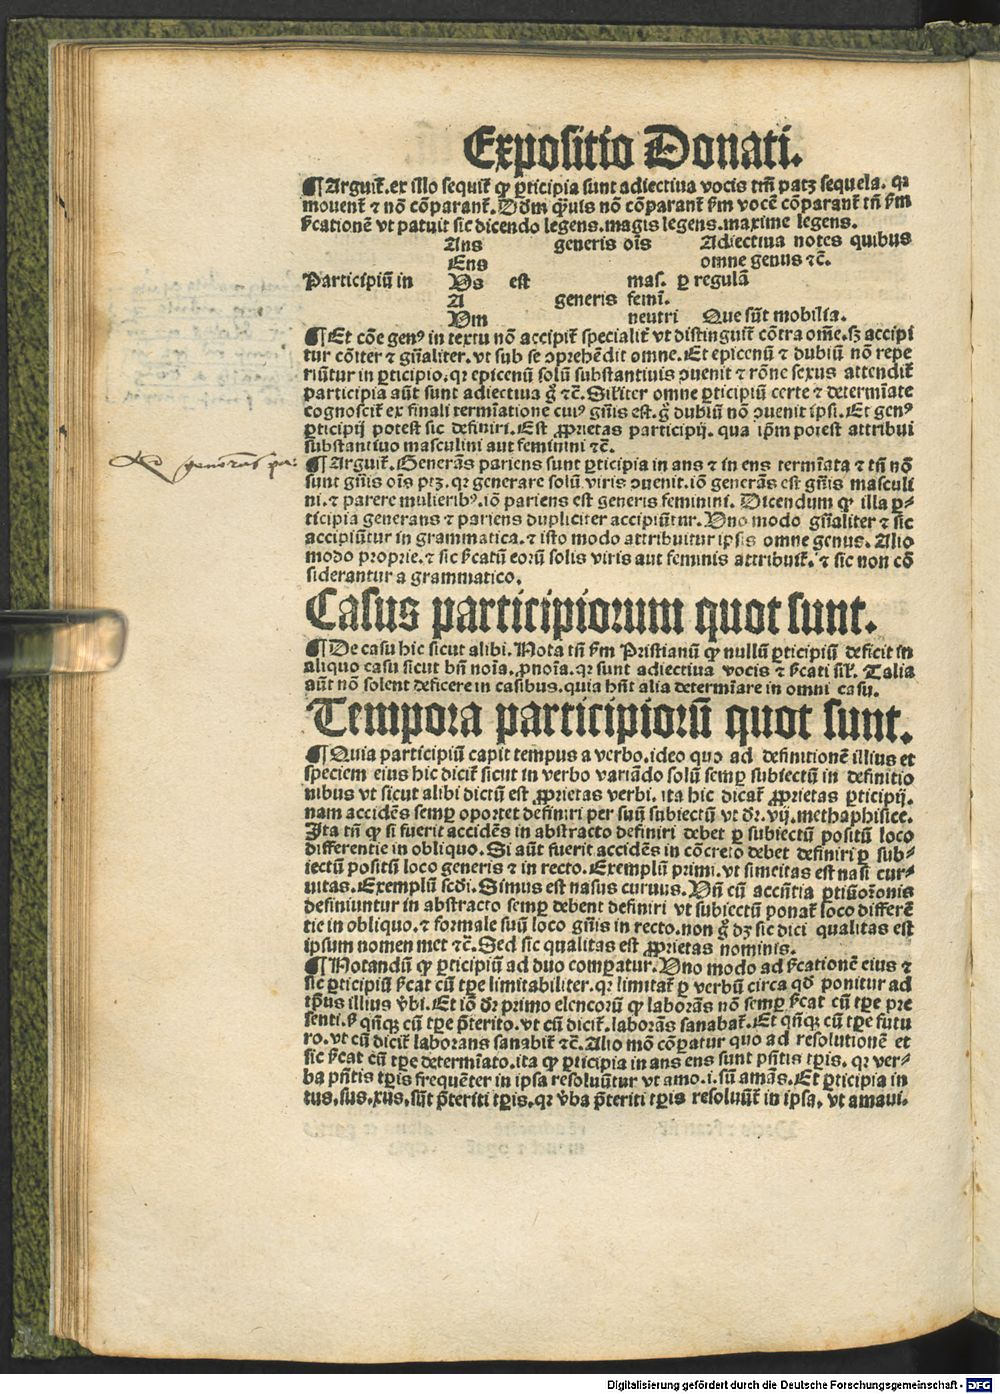 Expositio Donati.
¶ Arguit̄. ex illo sequit̄ ꝙ ꝑticipia sunt adiectiua vocis tm̄ patꝫ sequela. qꝛ
mouent̄ ⁊ nō cōparant̄. Dd̄m q̄uis nō cōparant̄ ẜm vocē cōparant̄ tn̄ ẜm
ẜcationē vt patuit sic dicendo legens. magis legens. maxime legens.
Ans generis oīs Adiectiua notes quibus
Ens omne genus ⁊c̄.
Participiū in Vs est mas. ꝑ regulā
A generis femī.
Vm neutri Que sūt mobilia.
¶ Et cōe genꝰ in textu nō accipit̄ specialit̄ vt distinguit̄ cōtra om̄e. sꝫ accipi
tur cōiter ⁊ gn̄aliter. vt sub se ↄprehēdit omne. Et epicenū ⁊ dubiū nō repe
riūtur in ꝑticipio. qꝛ epicenū solū substantiuis ↄuenit ⁊ rōne sexus attendit̄
participia aūt sunt adiectiua g̊ ⁊c̄. Sil̄iter omne ꝑticipiū certe ⁊ determīate
cognoscit̄ ex finali termīatione cuiꝰ gn̄is est. g̊ dubiū nō ↄuenit ipsi. Et genꝰ
ꝑticipij potest sic definiri. Est ꝓprietas participij. qua ip̄m potest attribui
substantiuo masculini aut feminini ⁊c̄.
¶ Arguit̄. Generās pariens sunt ꝑticipia in ans ⁊ in ens termīata ⁊ tn̄ nō
sunt gn̄is oīs ptꝫ. qꝛ generare solū viris ↄuenit. iō generās est gn̄is masculi
ni. ⁊ parere mulieribꝰ. iō pariens est generis feminini. Dicendum ꝙ illa ꝑ⸗
ticipia generans ⁊ pariens dupliciter accipiūtur. Vno modo gn̄aliter ⁊ sic
accipiūtur in grammatica. ⁊ isto modo attribuitur ipsis omne genus. Alio
modo proprie. ⁊ sic ẜcatū eorū solis viris aut feminis attribuit̄. ⁊ sic non cō
siderantur a grammatico.
Casus participiorum quot sunt.
¶ De casu hic sicut alibi. Nota tn̄ ẜm Pristianū ꝙ nullū ꝑticipiū deficit in
aliquo casu sicut bn̄ noīa. ꝓnoīa. qꝛ sunt adiectiua vocis ⁊ ẜcati sil̄. Talia
aūt nō solent deficere in casibus. quia hn̄t alia determīare in omni casu.
Tempora participiorū quot sunt.
¶ Quia participiū capit tempus a verbo. ideo quo ad definitionē illius et
speciem eius hic dicit̄ sicut in verbo variādo solū semꝑ subiectū in definitio
nibus vt sicut alibi dictū est ꝓprietas verbi. ita hic dicat̄ ꝓprietas ꝑticipij.
nam accidēs semꝑ oportet definiri per suū subiectū vt dr̄. vij. methaphisice.
Ita tn̄ ꝙ si fuerit accidēs in abstracto definiri debet ꝑ subiectū positū loco
differentie in obliquo. Si aūt fuerit accidēs in cōcreto debet definiri ꝑ sub⸗
iectū positū loco generis ⁊ in recto. Exemplū primi. vt simeitas est nasi cur⸗
uitas. Exemplū scd̄i. Simus est nasus curuus. Vn̄ cū accn̄tia ꝑtiū or̄onis
definiuntur in abstracto semꝑ debent definiri vt subiectū ponat̄ loco differē
tie in obliquo. ⁊ formale suū loco gn̄is in recto. non g̊ dꝫ sic dici qualitas est
ipsum nomen met ⁊c̄. Sed sic qualitas est ꝓprietas nominis.
¶ Notandū ꝙ ꝑticipiū ad duo comꝑatur. Vno modo ad ẜcationē eius ⁊
sic ꝑticipiū ẜcat cū tꝑe limitabiliter. qꝛ limitat̄ ꝑ verbū circa qd̄ ponitur ad
tp̄us illius v̄bi. Et iō dr̄ primo elencorū ꝙ laborās nō semꝑ ẜcat cū tꝑe pre
senti. ẜ qn̄qꝫ cū tꝑe p̄terito. vt cū dicit̄. laborās sanabat̄. Et qn̄qꝫ cū tꝑe futu
ro. vt cū dicit̄ laborans sanabit̄ ⁊c̄. Alio mō cōꝑatur quo ad resolutionē et
sic ẜcat cū tꝑe determīato. ita ꝙ ꝑticipia in ans ens sunt pn̄tis tꝑis. qꝛ ver⸗
ba pn̄tis tꝑis frequēter in ipsa resoluūtur vt amo. i. sū amās. Et ꝑticipia in
tus. sus. xus. sūt p̄teriti tꝑis. qꝛ v̄ba p̄teriti tꝑis resoluūt̄ in ipsa. vt amaui.
Digitalisierung gefördert durch die Deutsche Forschungsgemeinschaft - DFG